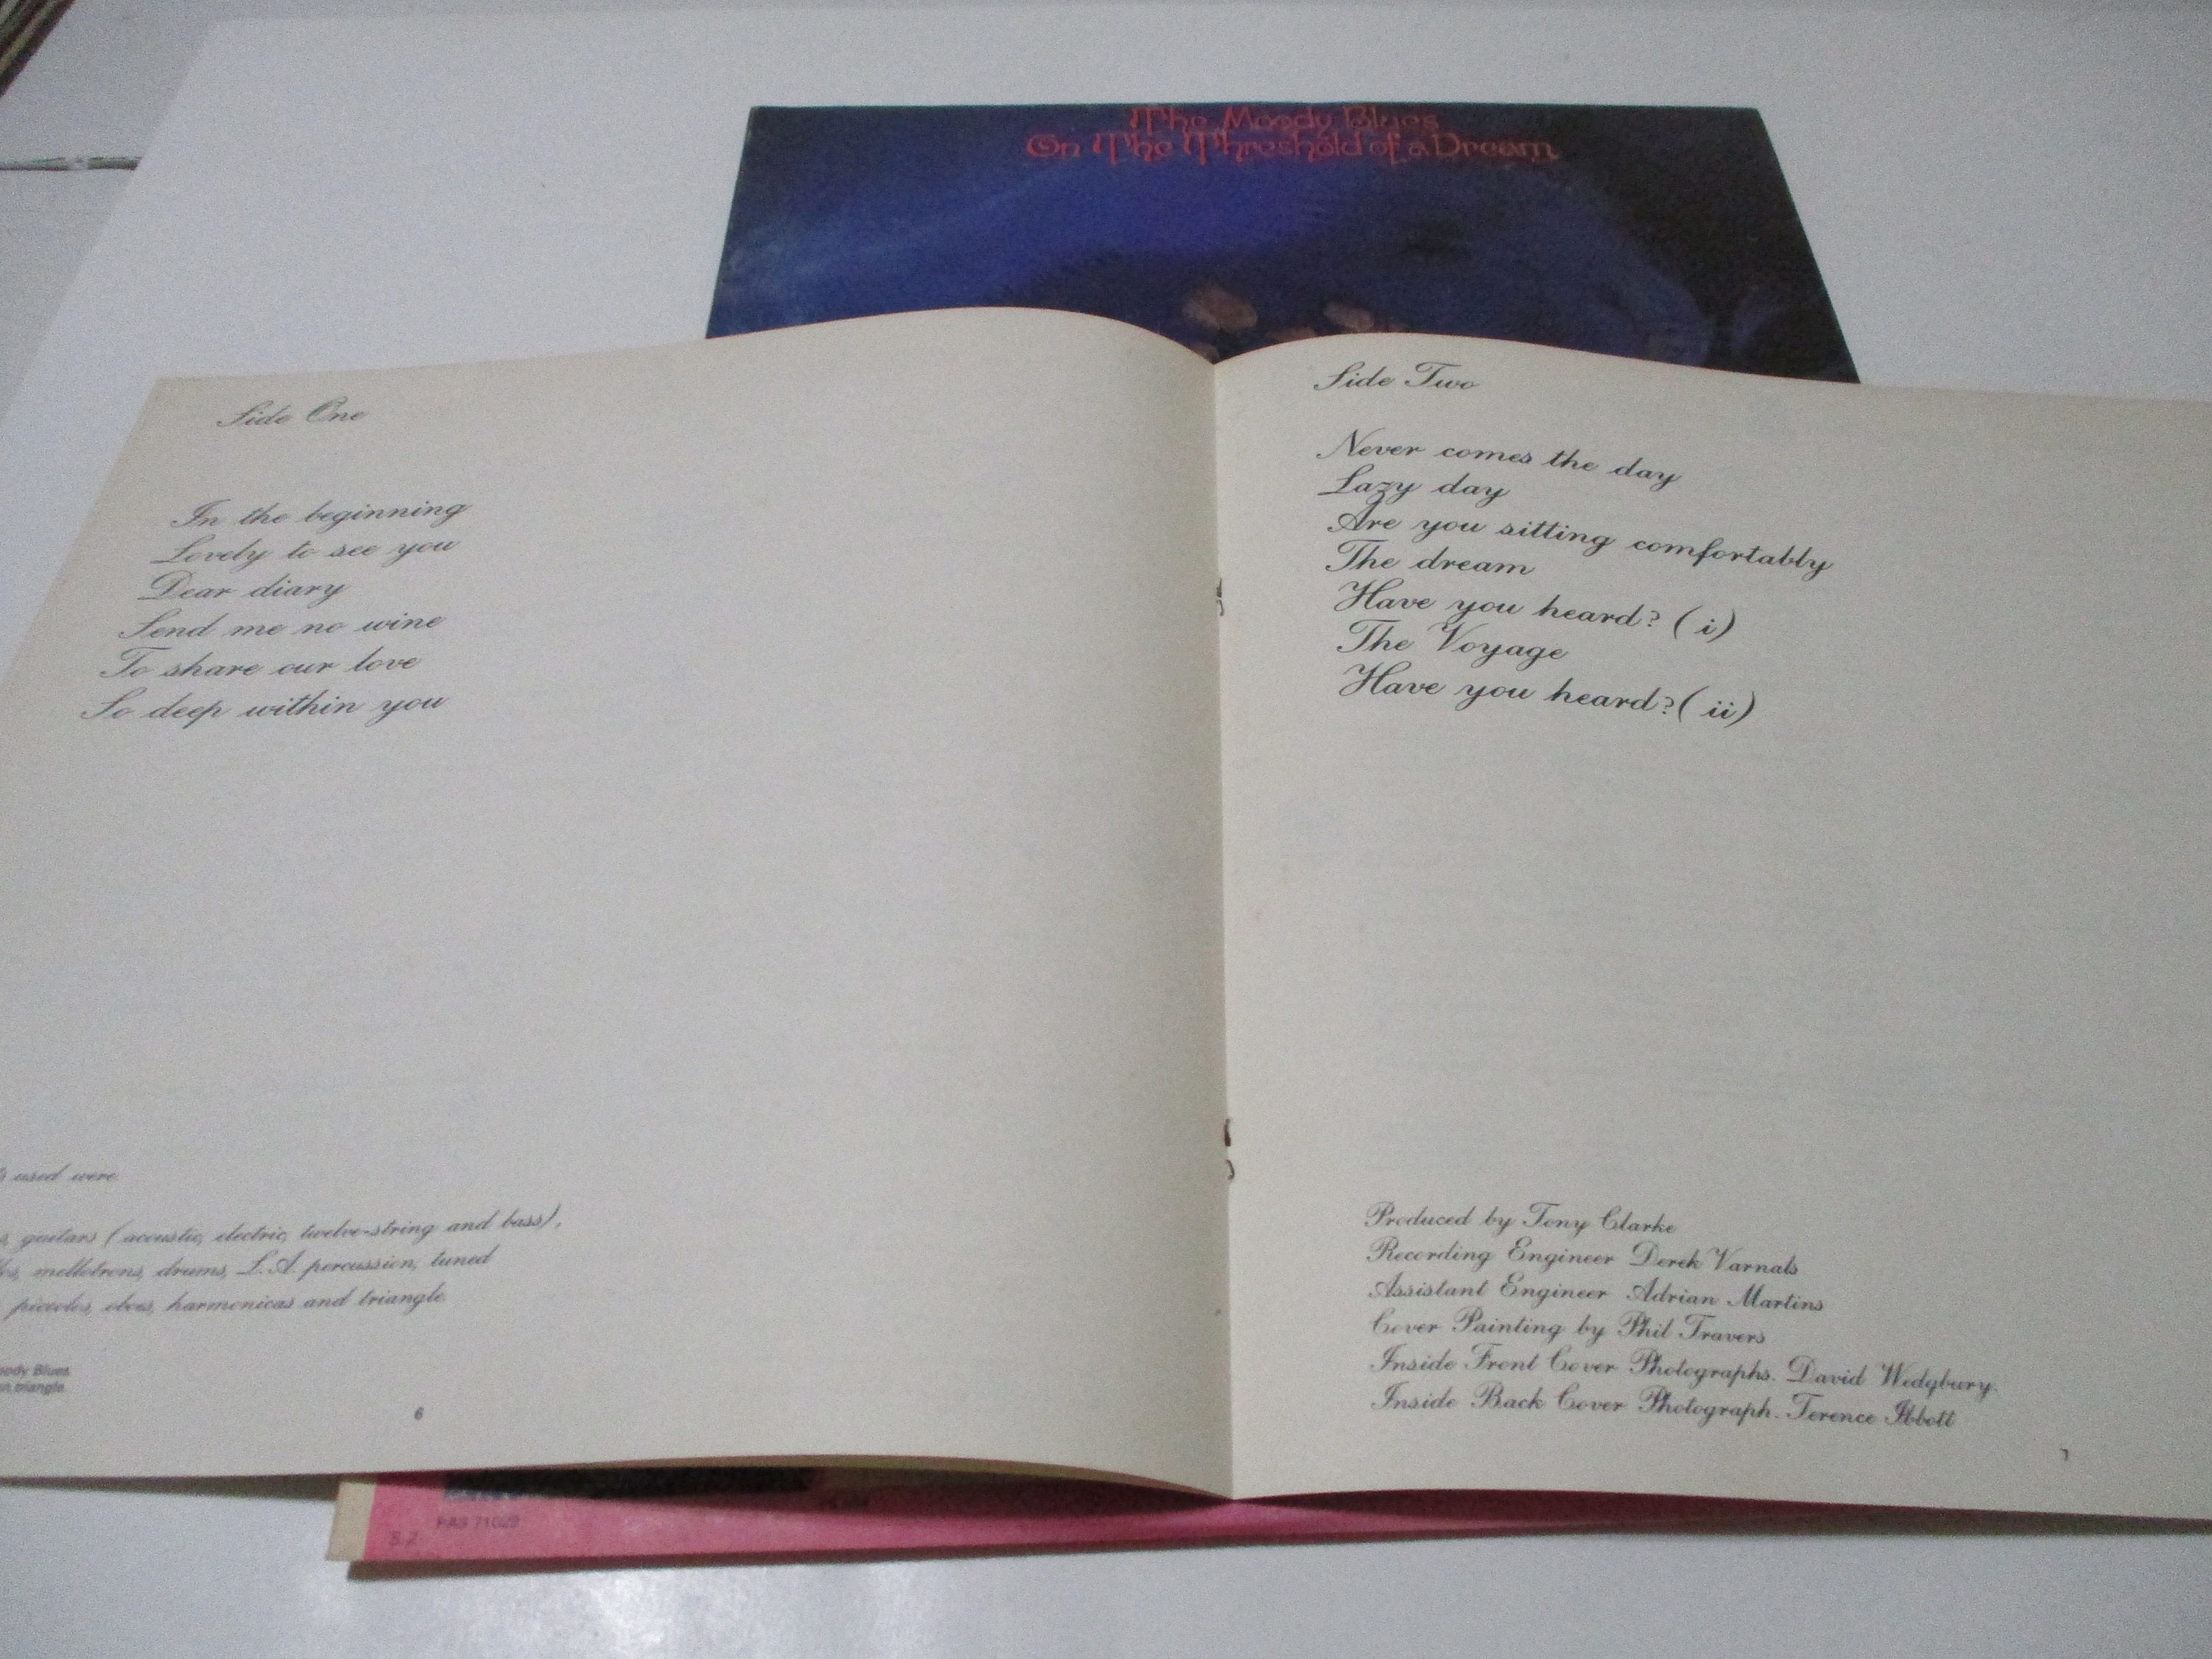 The Moody Blues
On The Threshold of a Dream
Side One
In the beginning
Lovely to see you
Dear diary
Send me no wine
To share our love
So deep within you
used were.
guitars (acoustic, electric, twelve-string and bass),
mellotrons, drums, L.A. percussion, tuned
piccolos, oboes, harmonicas and triangle.
Blues.
triangle.
6
Side Two
Never comes the day
Lazy day
Are you sitting comfortably
The dream
Have you heard? (i)
The Voyage
Have you heard? (ii)
Produced by Tony Clarke
Recording Engineer Derek Varnals
Assistant Engineer Adrian Martins
Cover Painting by Phil Travers
Inside Front Cover Photographs. David Wedgbury.
Inside Back Cover Photograph. Terence Ibbott
7